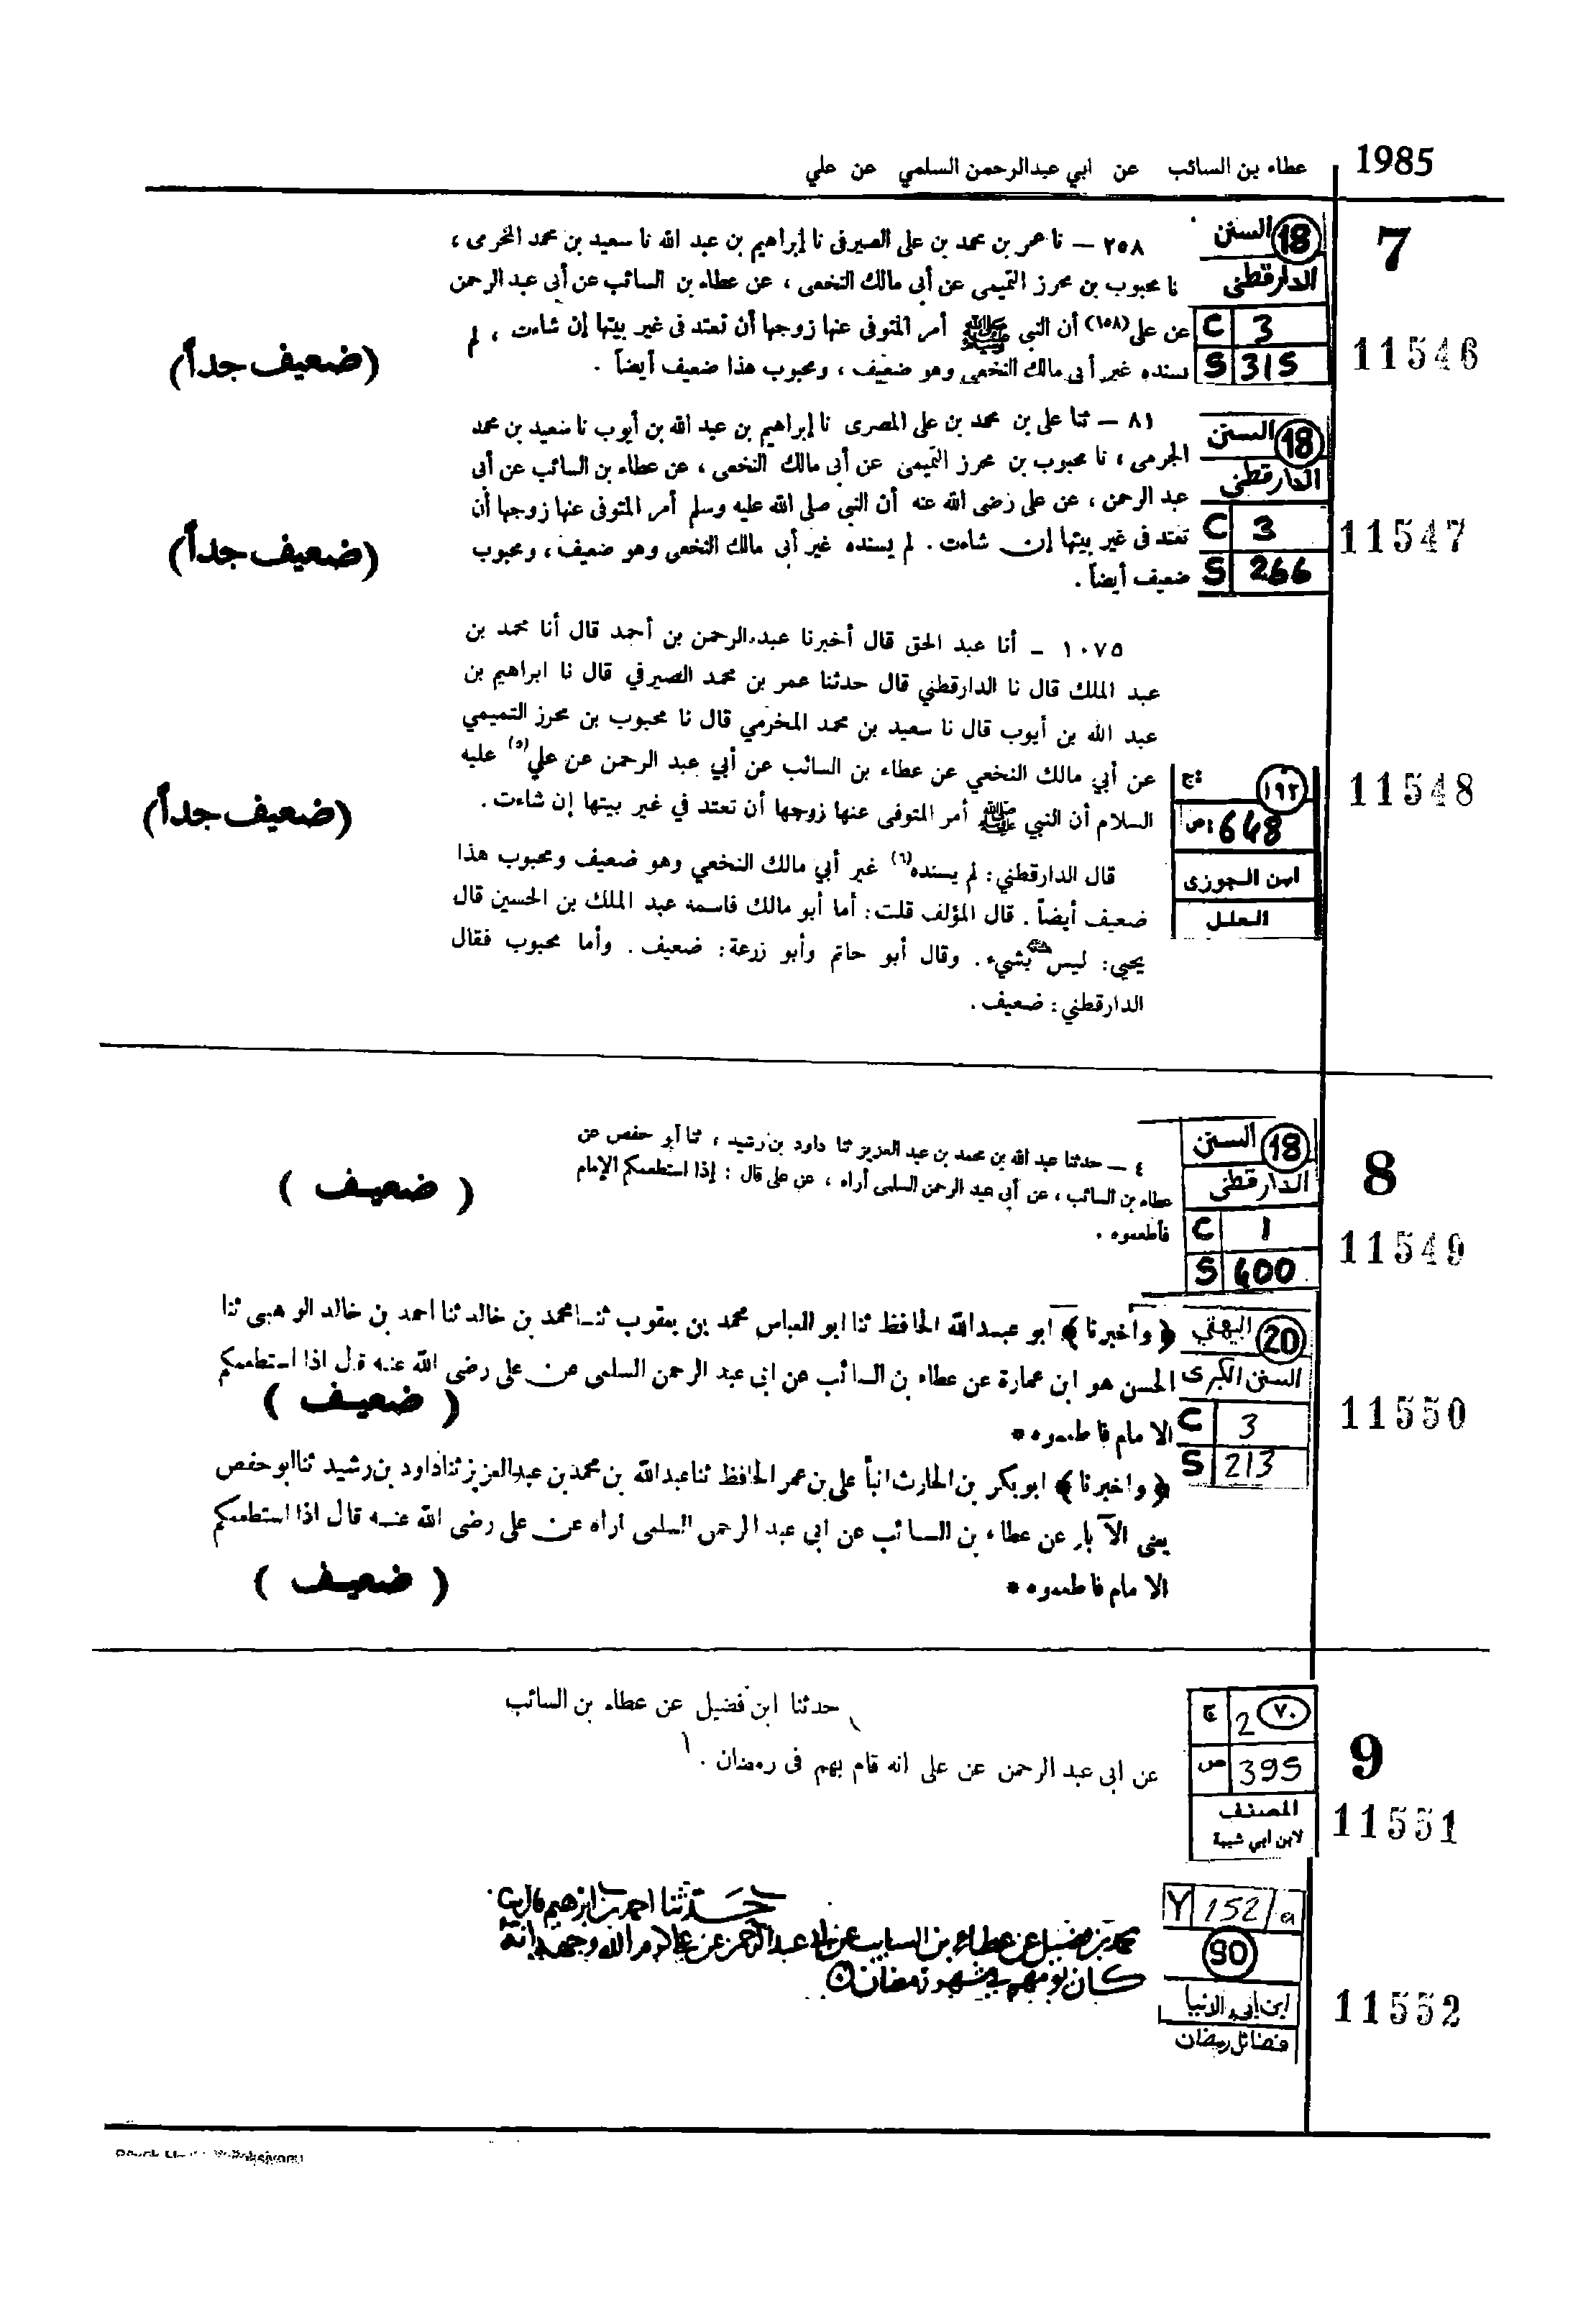 1985
عطاء بن السائب عن ابي عبدالرحمن السلمي عن علي
7
18 السنن
الدارقطني
C 3
S 315
11546
٢٥٨ — نا عمر بن محمد بن على الصيرفى نا إبراهيم بن عبد الله نا سعيد بن محمد المخرمى ،
نا محبوب بن محرز التميمى عن أبى مالك النخعى ، عن عطاء بن السائب عن أبى عبد الرحمن
عن على (١٥٨) أن النبي ﷺ أمر المتوفى عنها زوجها أن تعتد فى غير بيتها إن شاءت ، لم
يسنده غير أبى مالك النخعى وهو ضعيف ، ومحبوب هذا ضعيف أيضاً .
(ضعيف جداً)
18 السنن
الدارقطني
C 3
S 266
11547
٨١ — ثنا على بن محمد بن على المصرى نا إبراهيم بن عبد الله بن أيوب نا سعيد بن محمد
الجرمى ، نا محبوب بن محرز التميمى عن أبى مالك النخعى ، عن عطاء بن السائب عن أبى
عبد الرحمن ، عن على رضى الله عنه أن النبي صلى الله عليه وسلم أمر المتوفى عنها زوجها أن
تعتد فى غير بيتها إن شاءت . لم يسنده غير أبى مالك النخعى وهو ضعيف ، ومحبوب
ضعيف أيضاً .
(ضعيف جداً)
١٠٧٥ - أنا عبد الحق قال أخبرنا عبد الرحمن بن أحمد قال أنا محمد بن
عبد الملك قال نا الدارقطني قال حدثنا عمر بن محمد الصيرفي قال نا ابراهيم بن
عبد الله بن أيوب قال نا سعيد بن محمد المخرمي قال نا محبوب بن محرز التميمي
عن أبي مالك النخعي عن عطاء بن السائب عن أبي عبد الرحمن عن علي (٥) عليه
السلام أن النبي ﷺ أمر المتوفى عنها زوجها أن تعتد في غير بيتها إن شاءت .
قال الدارقطني: لم يسنده (٦) غير أبي مالك النخعي وهو ضعيف ومحبوب هذا
ضعيف أيضاً . قال المؤلف قلت: أما أبو مالك فاسمه عبد الملك بن الحسين قال
يحيى: ليس بشيء. وقال أبو حاتم وأبو زرعة: ضعيف. وأما محبوب فقال
الدارقطني: ضعيف .
١٩٢ ج:
ص: 648
ابن الجوزي
العلل
11548
(ضعيف جداً)
8
18 السنن
الدارقطني
C 1
S 400
11549
٤ — حدثنا عبد الله بن محمد بن عبد العزيز ثنا داود بن رشيد ، ثنا أبو حفص عن
عطاء بن السائب ، عن أبى عبد الرحمن السلمى أراه ، عن على قال : إذا استطعمكم الإمام
فأطعموه .
( ضعيف )
20 البيهقي
السنن الكبرى
C 3
S 213
11550
﴿ واخبرنا ﴾ ابو عبدالله الحافظ ثنا ابو العباس محمد بن يعقوب ثنا محمد بن خالد ثنا احمد بن خالد الوهبى ثنا
الحسن هو ابن عمارة عن عطاء بن السائب عن ابى عبد الرحمن السلمى عن على رضى الله عنه قال اذا استطعمكم
الامام فاطعموه *
( ضعيف )
﴿ واخبرنا ﴾ ابو بكر بن الحارث انبأ على بن عمر الحافظ ثنا عبدالله بن محمد بن عبدالعزيز ثنا داود بن رشيد ثنا ابو حفص
يعنى الآبار عن عطاء بن السائب عن ابى عبد الرحمن السلمى اراه عن على رضى الله عنه قال اذا استطعمكم
الامام فاطعموه *
( ضعيف )
9
٧٠ 2 ج
395 ص
المصنف
لابن ابي شيبة
11551
حدثنا ابن فضيل عن عطاء بن السائب
عن ابى عبد الرحمن عن على انه قام بهم فى رمضان .
Y 152/a
90
ابن ابي الدنيا
فضائل رمضان
11552
حدثنا احمد بن ابرهيم قال ثنا
محمد بن فضيل عن عطاء بن السايب عن ابي عبد الرحمن عن علي كرم الله وجهه انه
كان يومهم في شهر رمضان